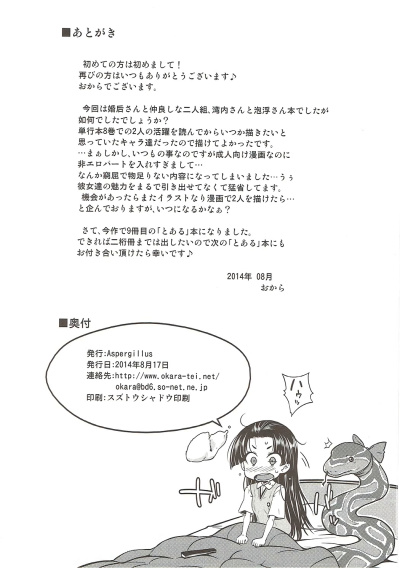 ■あとがき
初めての方は初めまして!
再びの方はいつもありがとうございます♪
おからでございます。
今回は婚后さんと仲良しな二人組、湾内さんと泡浮さん本でしたが
如何でしたでしょうか?
単行本8巻での2人の活躍を読んでからいつか描きたいと
思っていたキャラ達だったので描けてよかったです。
…まぁしかし、いつもの事なのですが成人向け漫画なのに
非エロパートを入れすぎまして…
なんか窮屈で物足りない内容になってしまいました…うぅ
彼女達の魅力をまるで引き出せてなくて猛省してます。
機会があったらまたイラストなり漫画で2人を描けたら…
と企んでおりますが、いつになるかなぁ?
さて、今作で9冊目の「とある」本になりました。
できれば二桁冊までは出したいので次の「とある」本にも
お付き合い頂けたら幸いです♪
2014年 08月
おから
■奥付
発行:Aspergillus
発行日:2014年8月17日
連絡先:http://www.okara-tei.net/
okara@bd6.so-net.ne.jp
印刷:スズトウシャドウ印刷